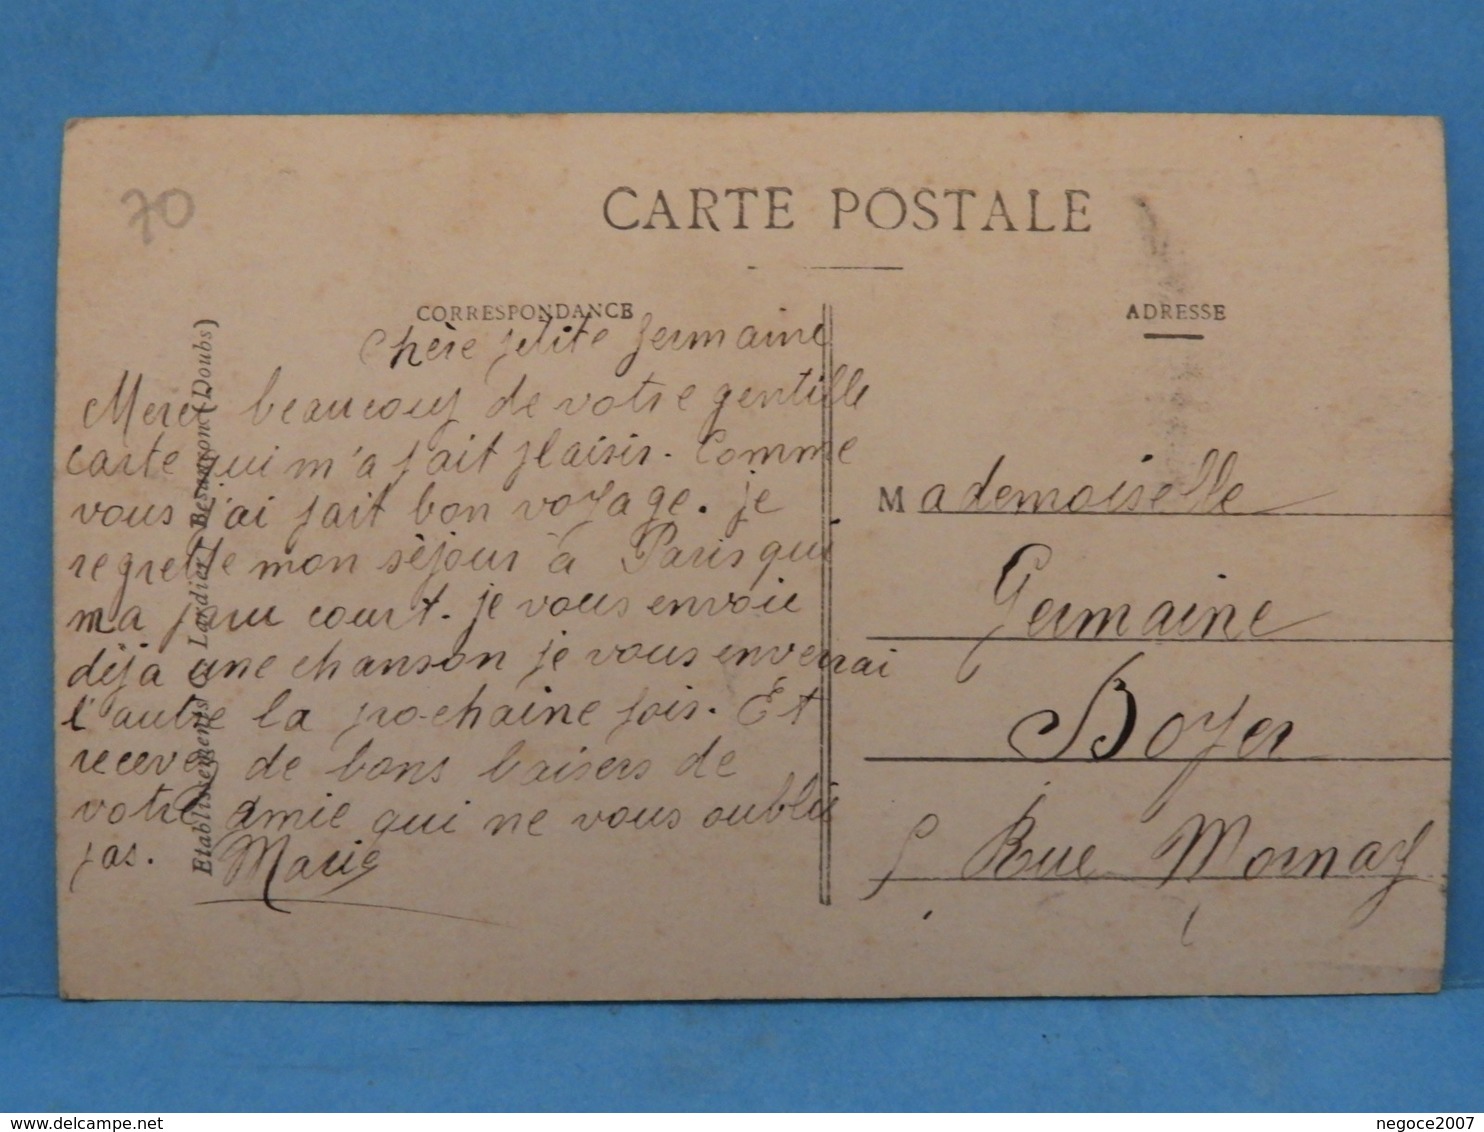 70
CARTE POSTALE
CORRESPONDANCE
ADRESSE
Chère petite Germaine
Merci beaucoup de votre gentille
carte qui m'a fait plaisir. Comme
vous j'ai fait bon voyage. je
regrette mon séjour à Paris qui
m'a paru court. je vous envoie
déjà une chanson je vous enverrai
l'autre la prochaine fois. Et
recevez de bons baisers de
votre amie qui ne vous oublie
pas. Marie
Etablissements C. Lardier, Besançon (Doubs)
Mademoiselle
Germaine
Boyer
5 Rue Mornay
delcampe.net
negoce2007